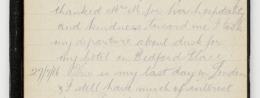 thanked Mrs M. for her hospitality
and kindness toward me I took
my departure about dusk for
my hotel in Bedford Place
27/7/16 This is my last day in London
& I still have much of interest